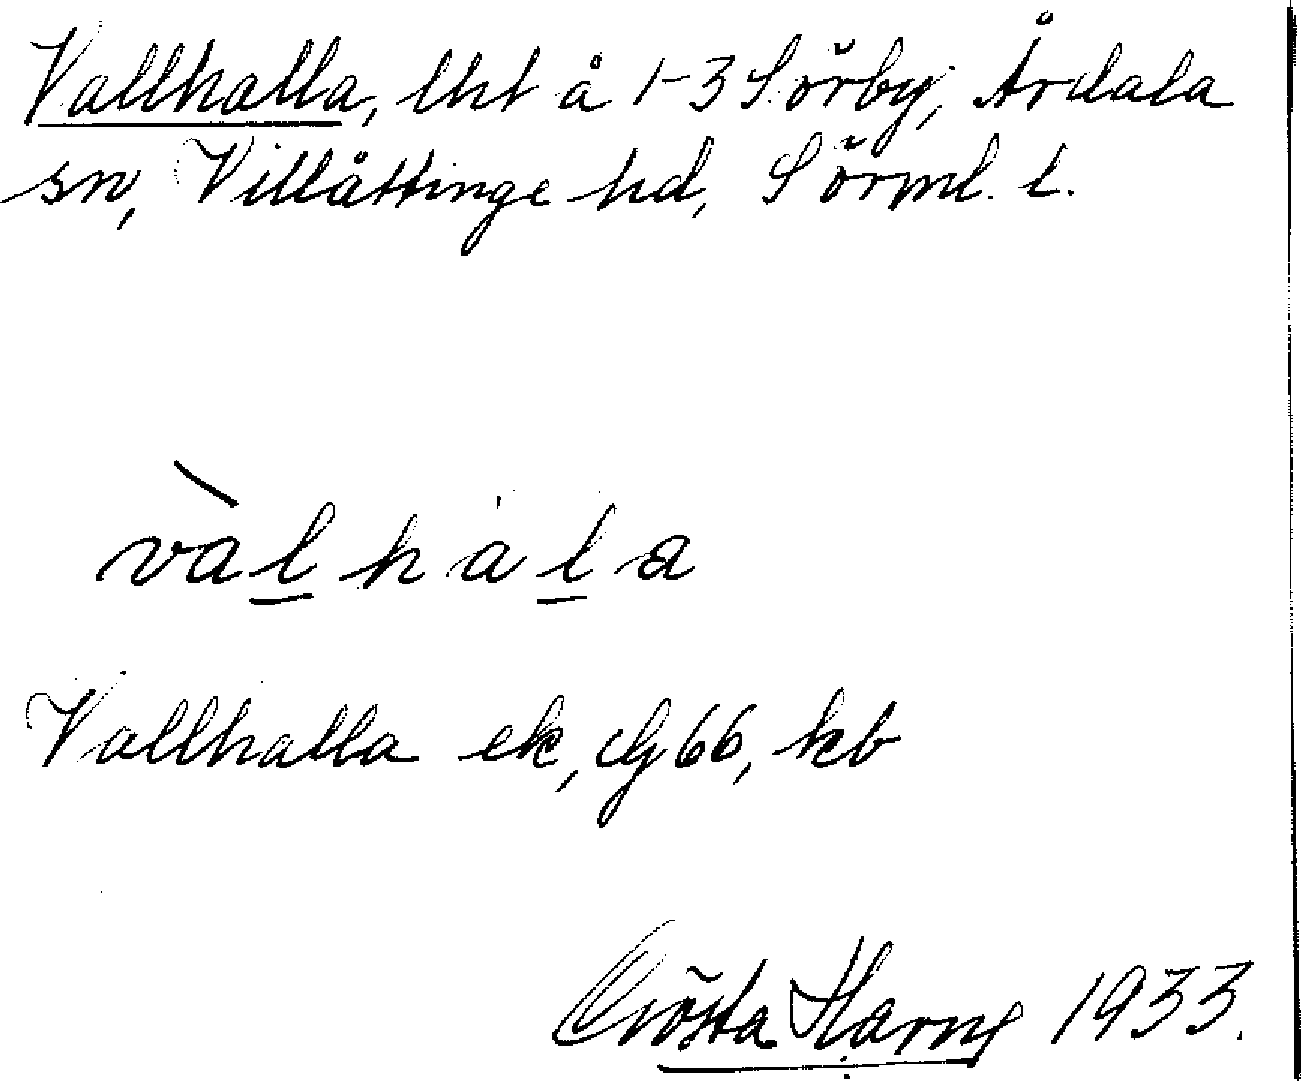 Vallhalla, lht å 1-3 Sörby, Årdala
sn, Villåttinge hd, Sörml. l.
vàlhàla
Vallhalla ek, 66, kb
Gösta 1933.